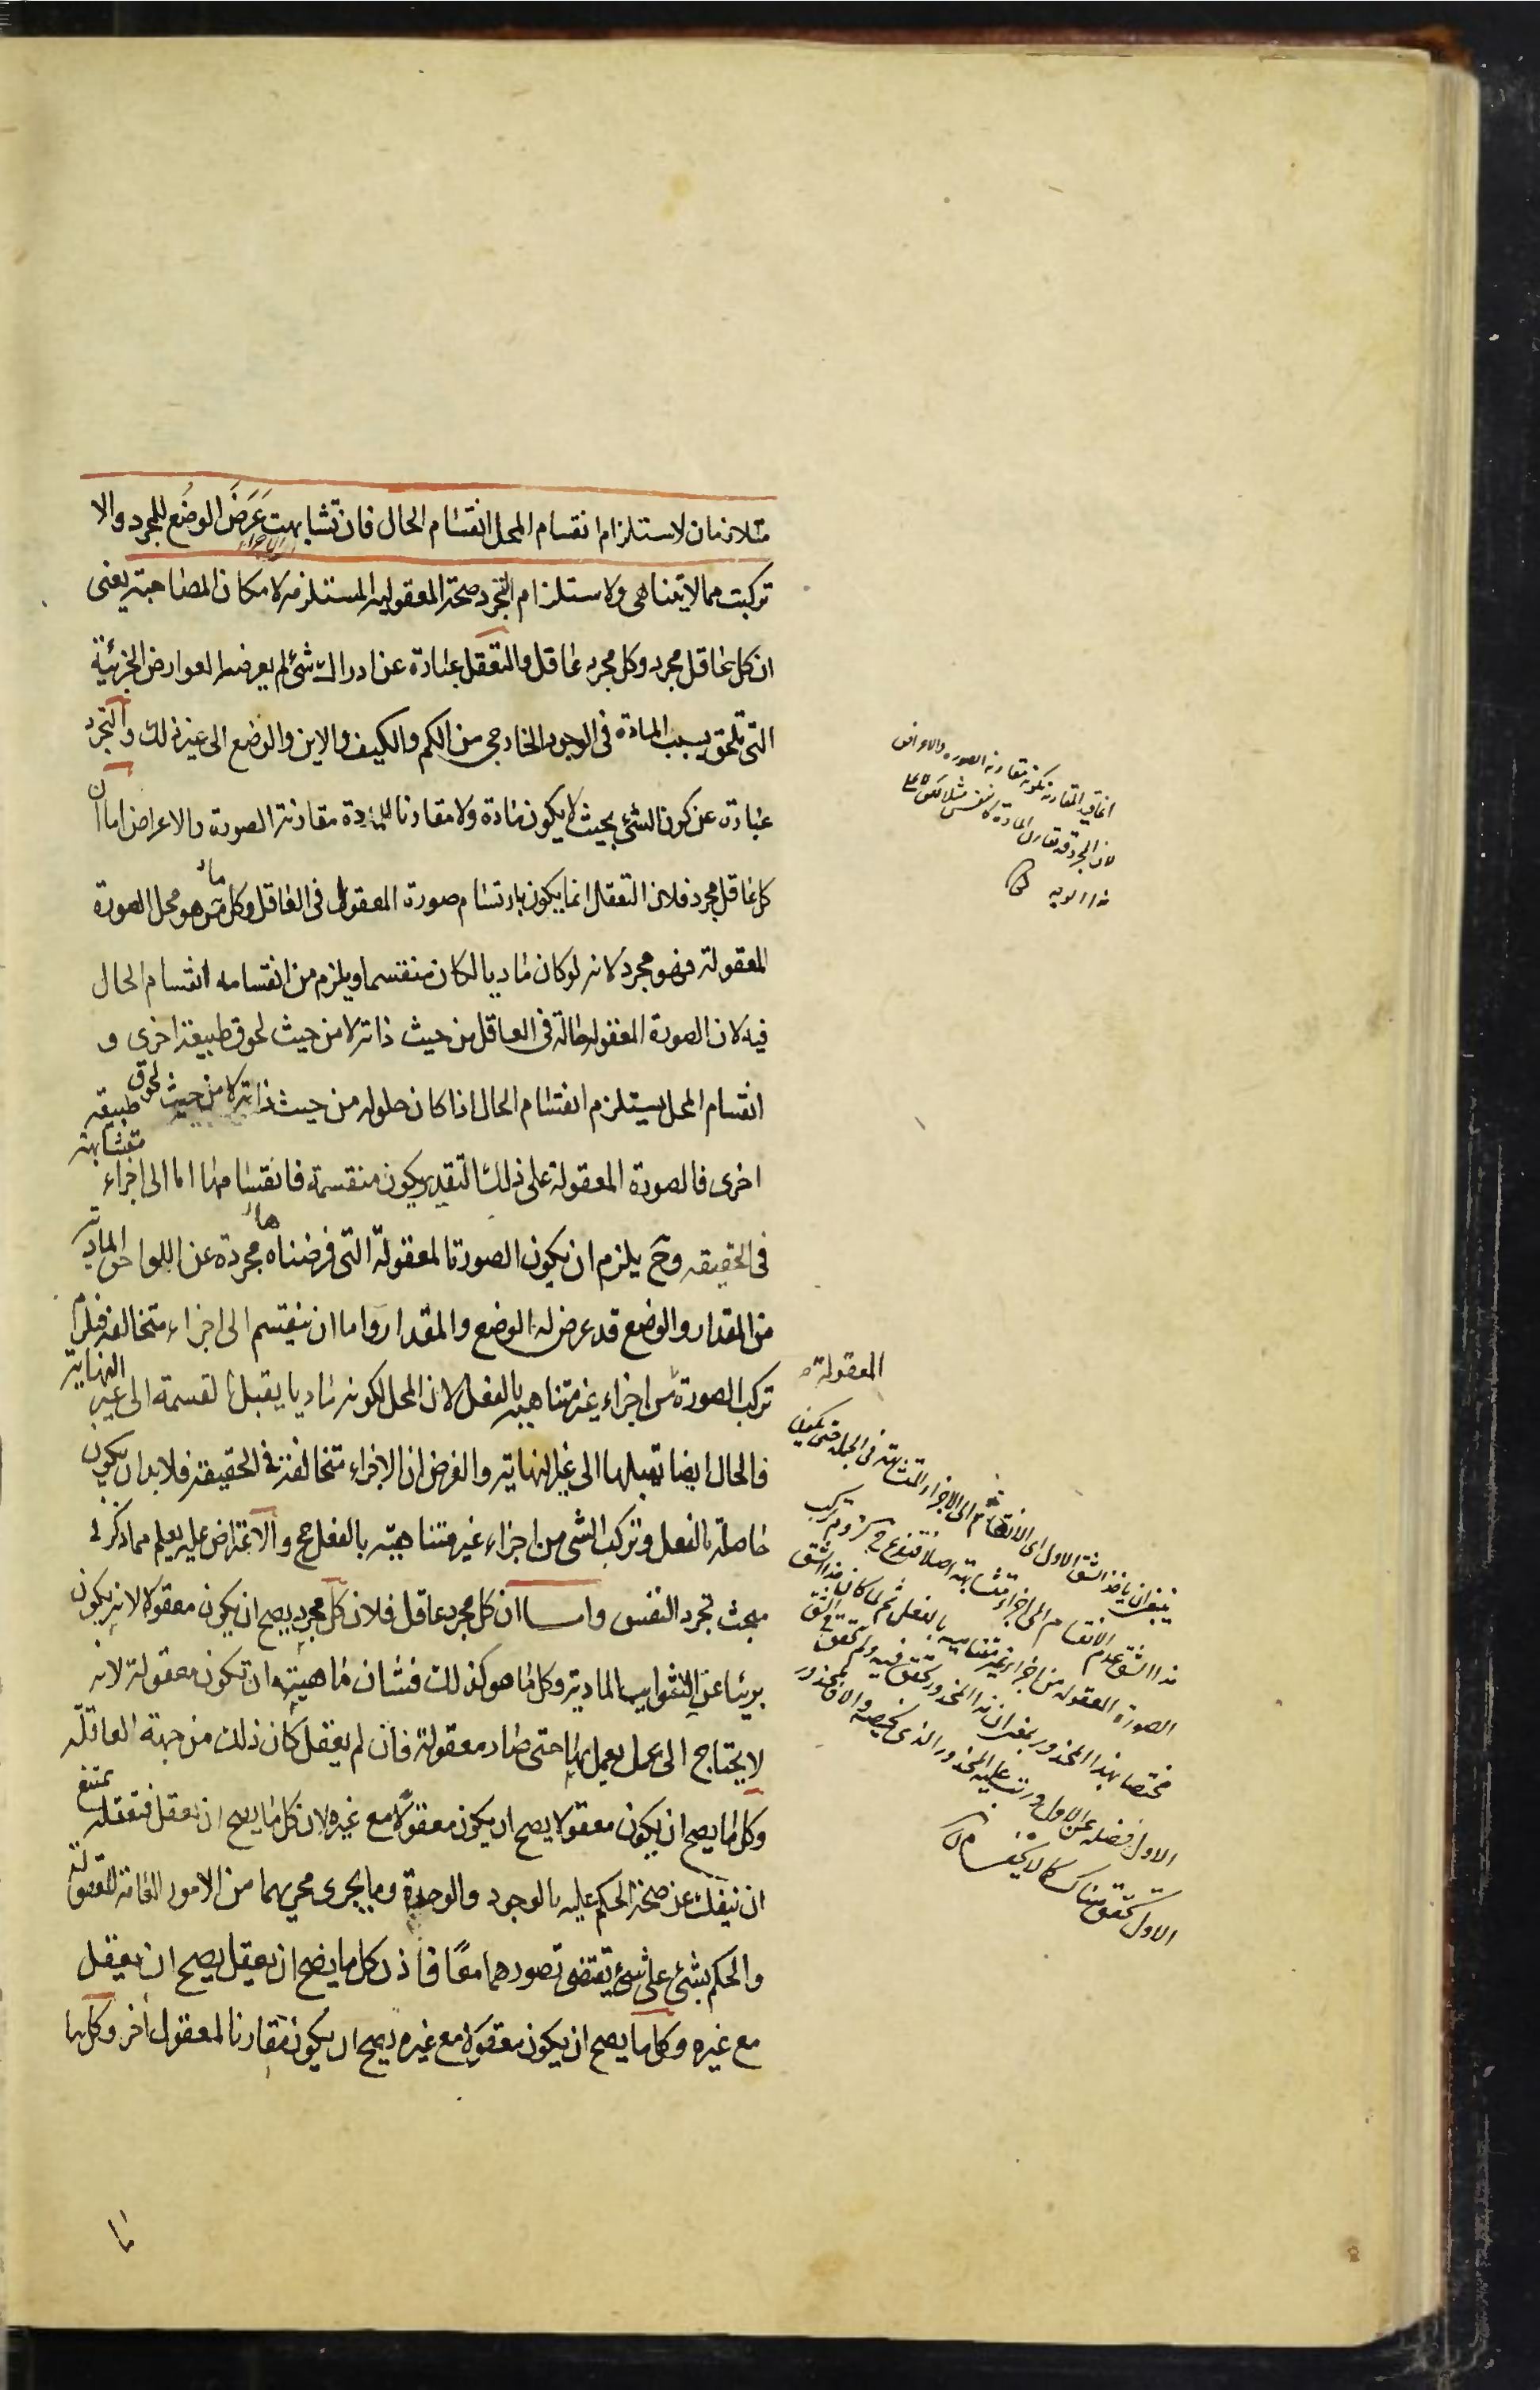 متلازمان لاستلزام انقسام المحل انقسام الحال فان تشابهت عَرَضَ الوضُع للمجرد والا
الاجزاء
تركبت مما لا يتناهى ولاستلزام التجرد صحة المعقولية المستلزمة لامكان المصاحبة يعنى
ان كل عاقل مجرد وكل مجرد عاقل والتعقل عبارة عن ادراك شئ لم يعرضه العوارض الجزئية
التى تلحق بسبب المادة فى الوجود الخارجى من الكم والكيف والاين والوضع الى غير ذلك والتجرد
عبارة عن كون الشئ بحيث لا يكون مادة ولا مقارنا للمادة مقارنة الصورة والاعراض اما ان
كل عاقل مجرد فلان التعقل انما يكون بارتسام صورة المعقول فى العاقل وكل ما هو محل الصورة
المعقولة فهو مجرد لانه لو كان ماديا لكان منقسما ويلزم من انقسامه انقسام الحال
فيه لان الصورة المعقولة حالة فى العاقل من حيث ذاته لا من حيث لحوق طبيعة اخرى و
انقسام المحل يستلزم انقسام الحال اذا كان حلوله من حيث ذاته لا من حيث لحوق طبيعه
اخرى فالصورة المعقولة على ذلك التقدير يكون منقسمة فانقسامها اما الى اجزاء متشابهة
فى الحقيقه وح يلزم ان يكون الصورة المعقولة التى فرضناها مجردة عن اللواحق المادية
من المقدار والوضع قد عرض له الوضع والمقدار واما ان ينقسم الى اجزاء متخالفة فيلزم
تركب الصورة من اجزاء غير متناهيه بالفعل لان المحل لكونه ماديا يقبل القسمة الى غير النهاية
فالحال ايضا تقبلها الى غير النهاية والفرض ان الاجزاء متخالفة فى الحقيقة فلا بد ان يكون
حاصلة بالفعل وتركب الشئ من اجزاء غير متناهيّه بالفعل مح والاعتراض عليه يعلم مما ذكر فى
مبحث تجرد النفس واما ان كل مجرد عاقل فلان كل مجرد يصح ان يكون معقولا لانه يكون
بريئا عن الشوايب المادية وكل ما هو كذلك فشان ماهيته ان تكون معقولة لانه
لا يحتاج الى عمل يعمل بها حتى صار معقولة فان لم يعقل كان ذلك من جهة العاقله
وكل ما يصح ان يكون معقولا يصح ان يكون معقولًا مع غيره لان كل ما يصح ان يعقل فتعقله يمتنع
ان ينفك عن صحة الحكم عليه بالوجود والوحدة وما يجرى مجريهما من الامور العامة المعقولة
والحكم بشئ على شئ يقتضى تصورهما معًا فاذن كل ما يصح ان يعقل يصح ان يعقل
مع غيره وكل ما يصح ان يكون معقولا مع غيره يصح ان يكون مقارنا لمعقول اخر وكل ما
انما قيد المقارنة بكونه مقارنه الصوره والاعراض
لان المجرد قد يقارن المادة كالنفس مثلا
المعقولة
ينبغى ان ياخذ الشق الاول اى الانقسام الى الاجزاء المتشابهة فى الجملة حتى يكون
هذا الشق عدم الانقسام الى اجزاء متشابهة اصلا لزوم تركب
الصورة المعقوله من اجزاء غير متناهيه بالفعل ثم لما كان هذا الشق
مختصا بهذا المحذور بمعنى ان هذا المحذور تحقق فيه ولم يتحقق فى الشق
الاول فصله عن الاول ورتب عليه المحذور الذى يخصه والا فالمحذور
الاول تحقق هناك كما لا يخفى